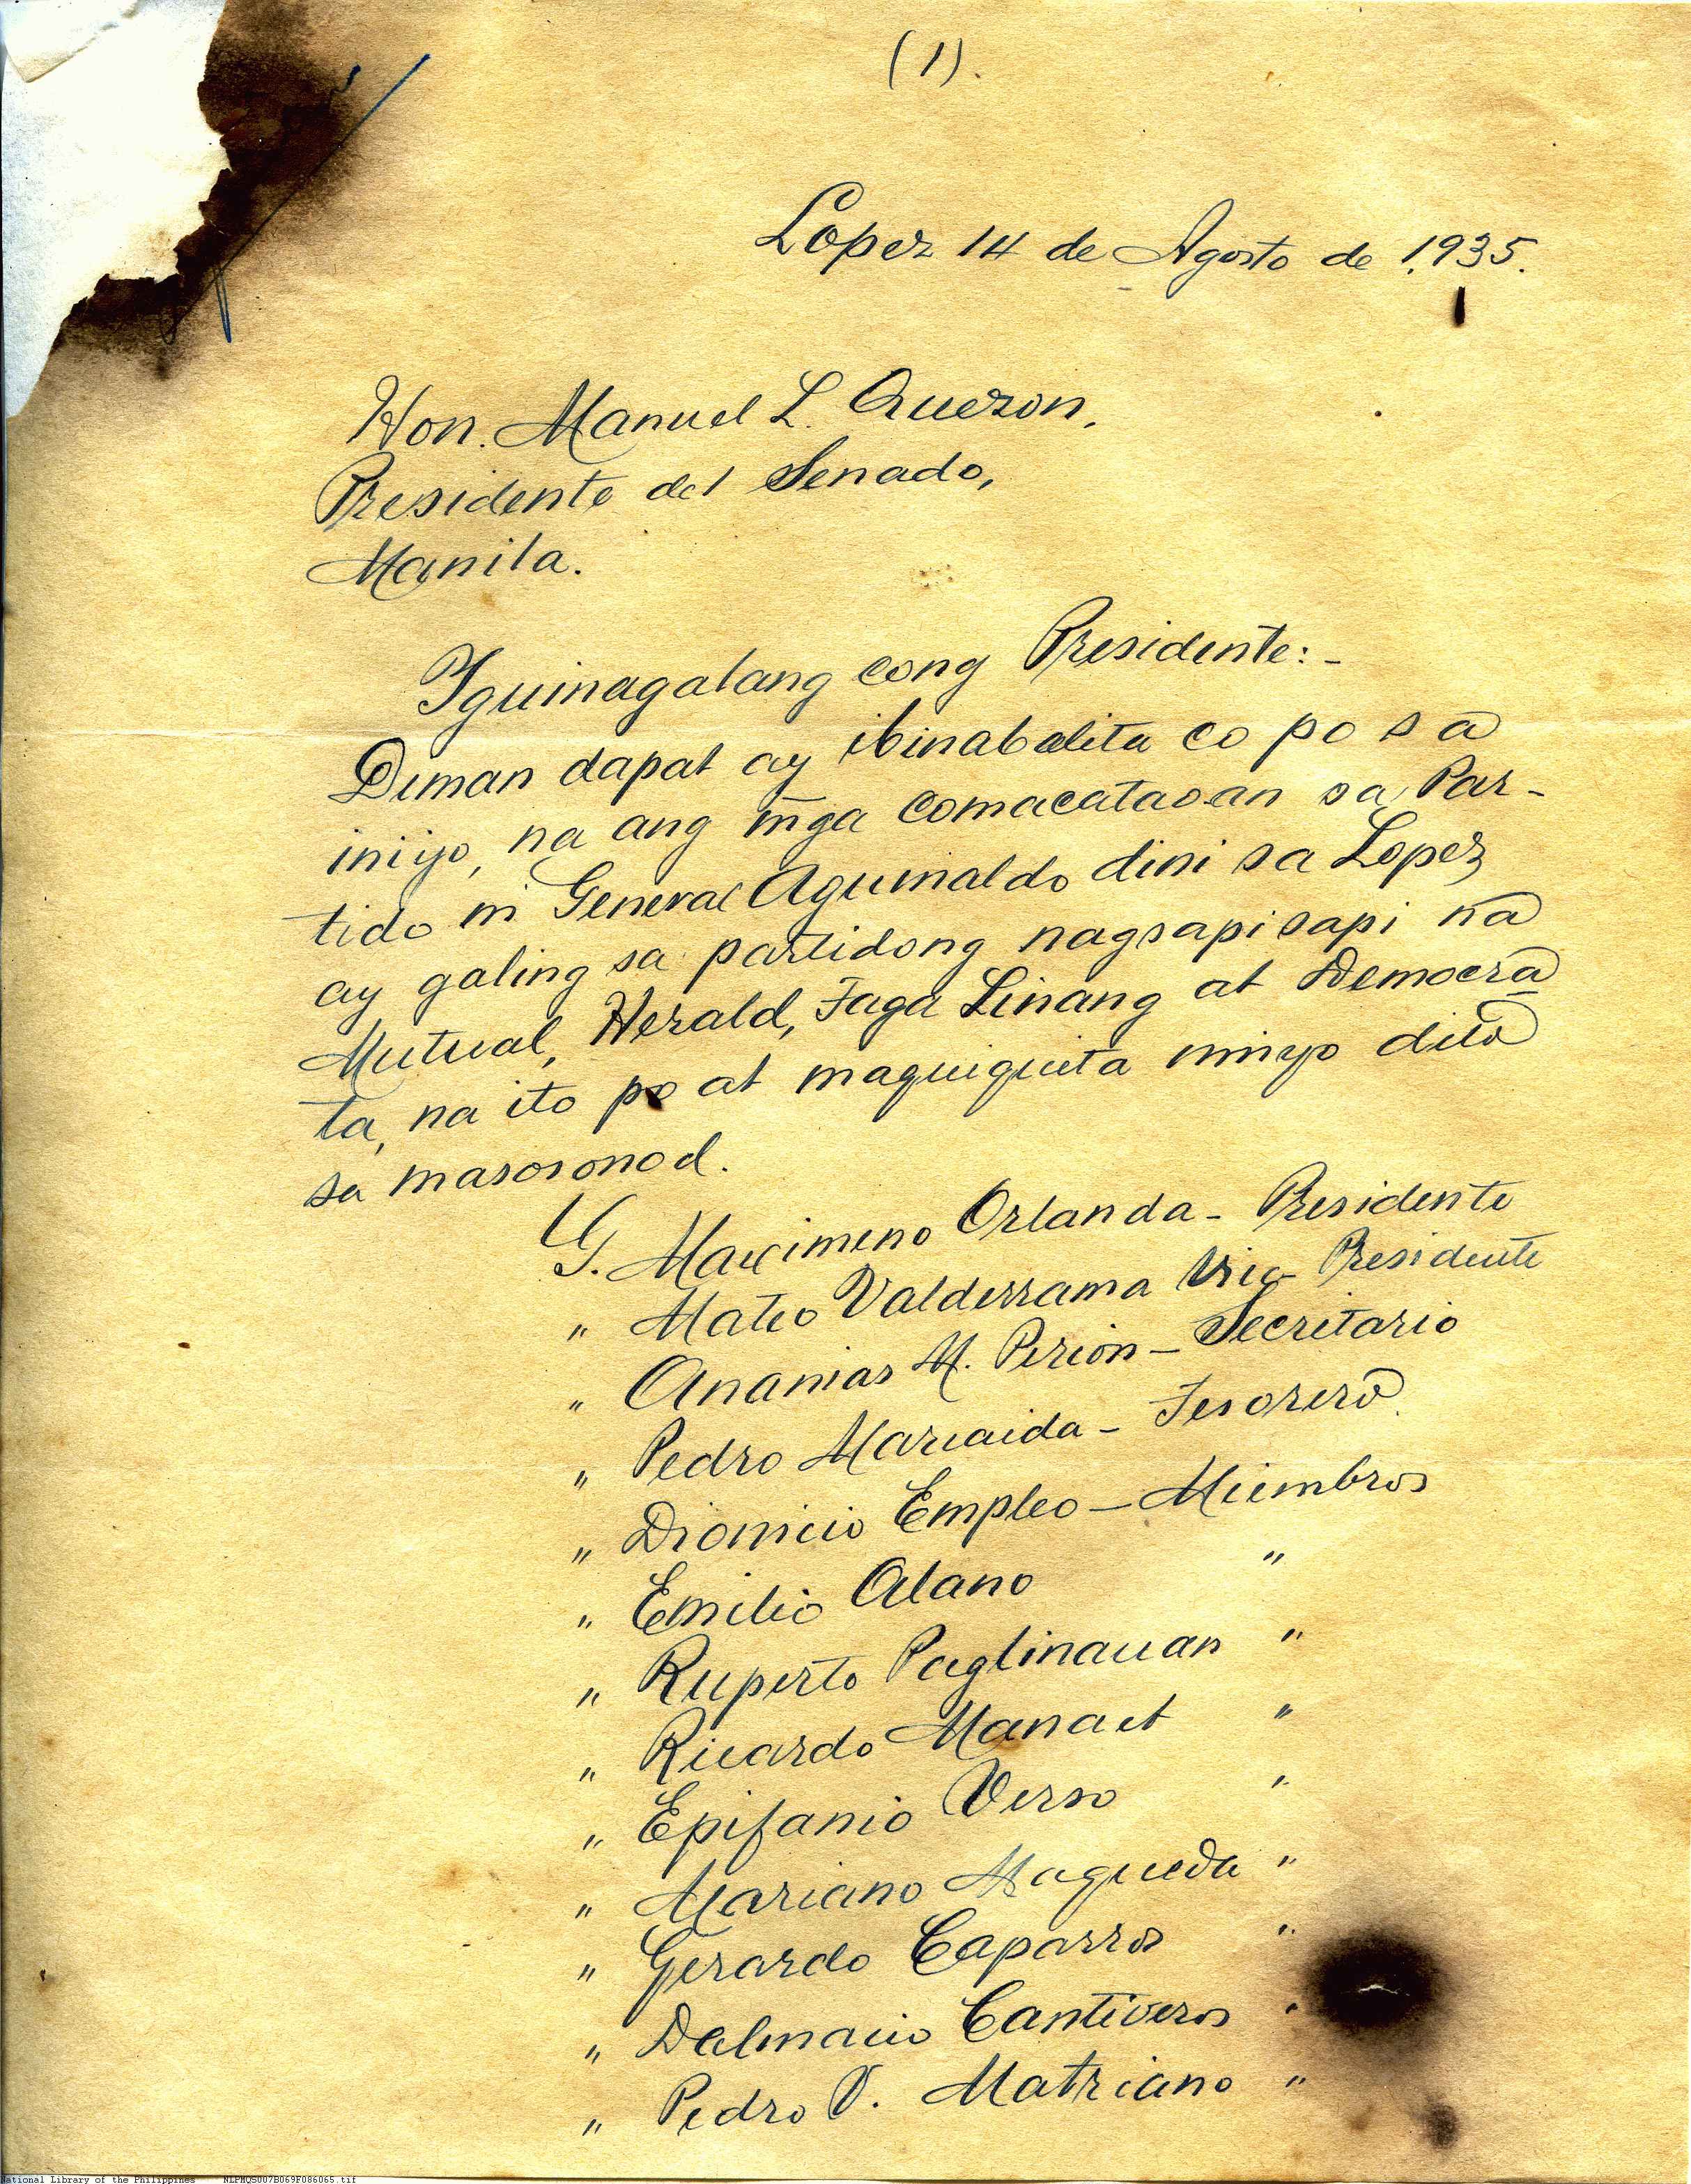 (1).
Lopez 14 de Agosto de 1935.
Hon. Manuel L. Quezon,
Presidente del Senado,
Manila.
Iguinagalang cong Presidente:-
Diman dapat ay ibinabalita co po sa
iniyo, na ang mga comacataoan sa Par-
tido ni General Aguinaldo dini sa Lopez
ay galing sa partidong nagsapisapi na
Mutual, Herald, Taga Linang at Democra
ta, na ito po at maquiquita ninyo dito
sa masosonod.
G. Maximeno Orlanda - Presidente
" Mateo Valderrama Vice Presidente
" Ananias M. Perion - Secretario
" Pedro Marcaida - Tesorero
" Dionicio Empleo - Miembros
" Emilio Alano "
" Ruperto Paglinauan "
" Ricardo Manaet "
" Epifanio Verso "
" Mariano Maqueda "
" Gerardo Caparros "
" Dalmacio Cantiveros "
" Pedro V. Matriano "
National Library of the Philippines NLPMQS007B069F086065.tif